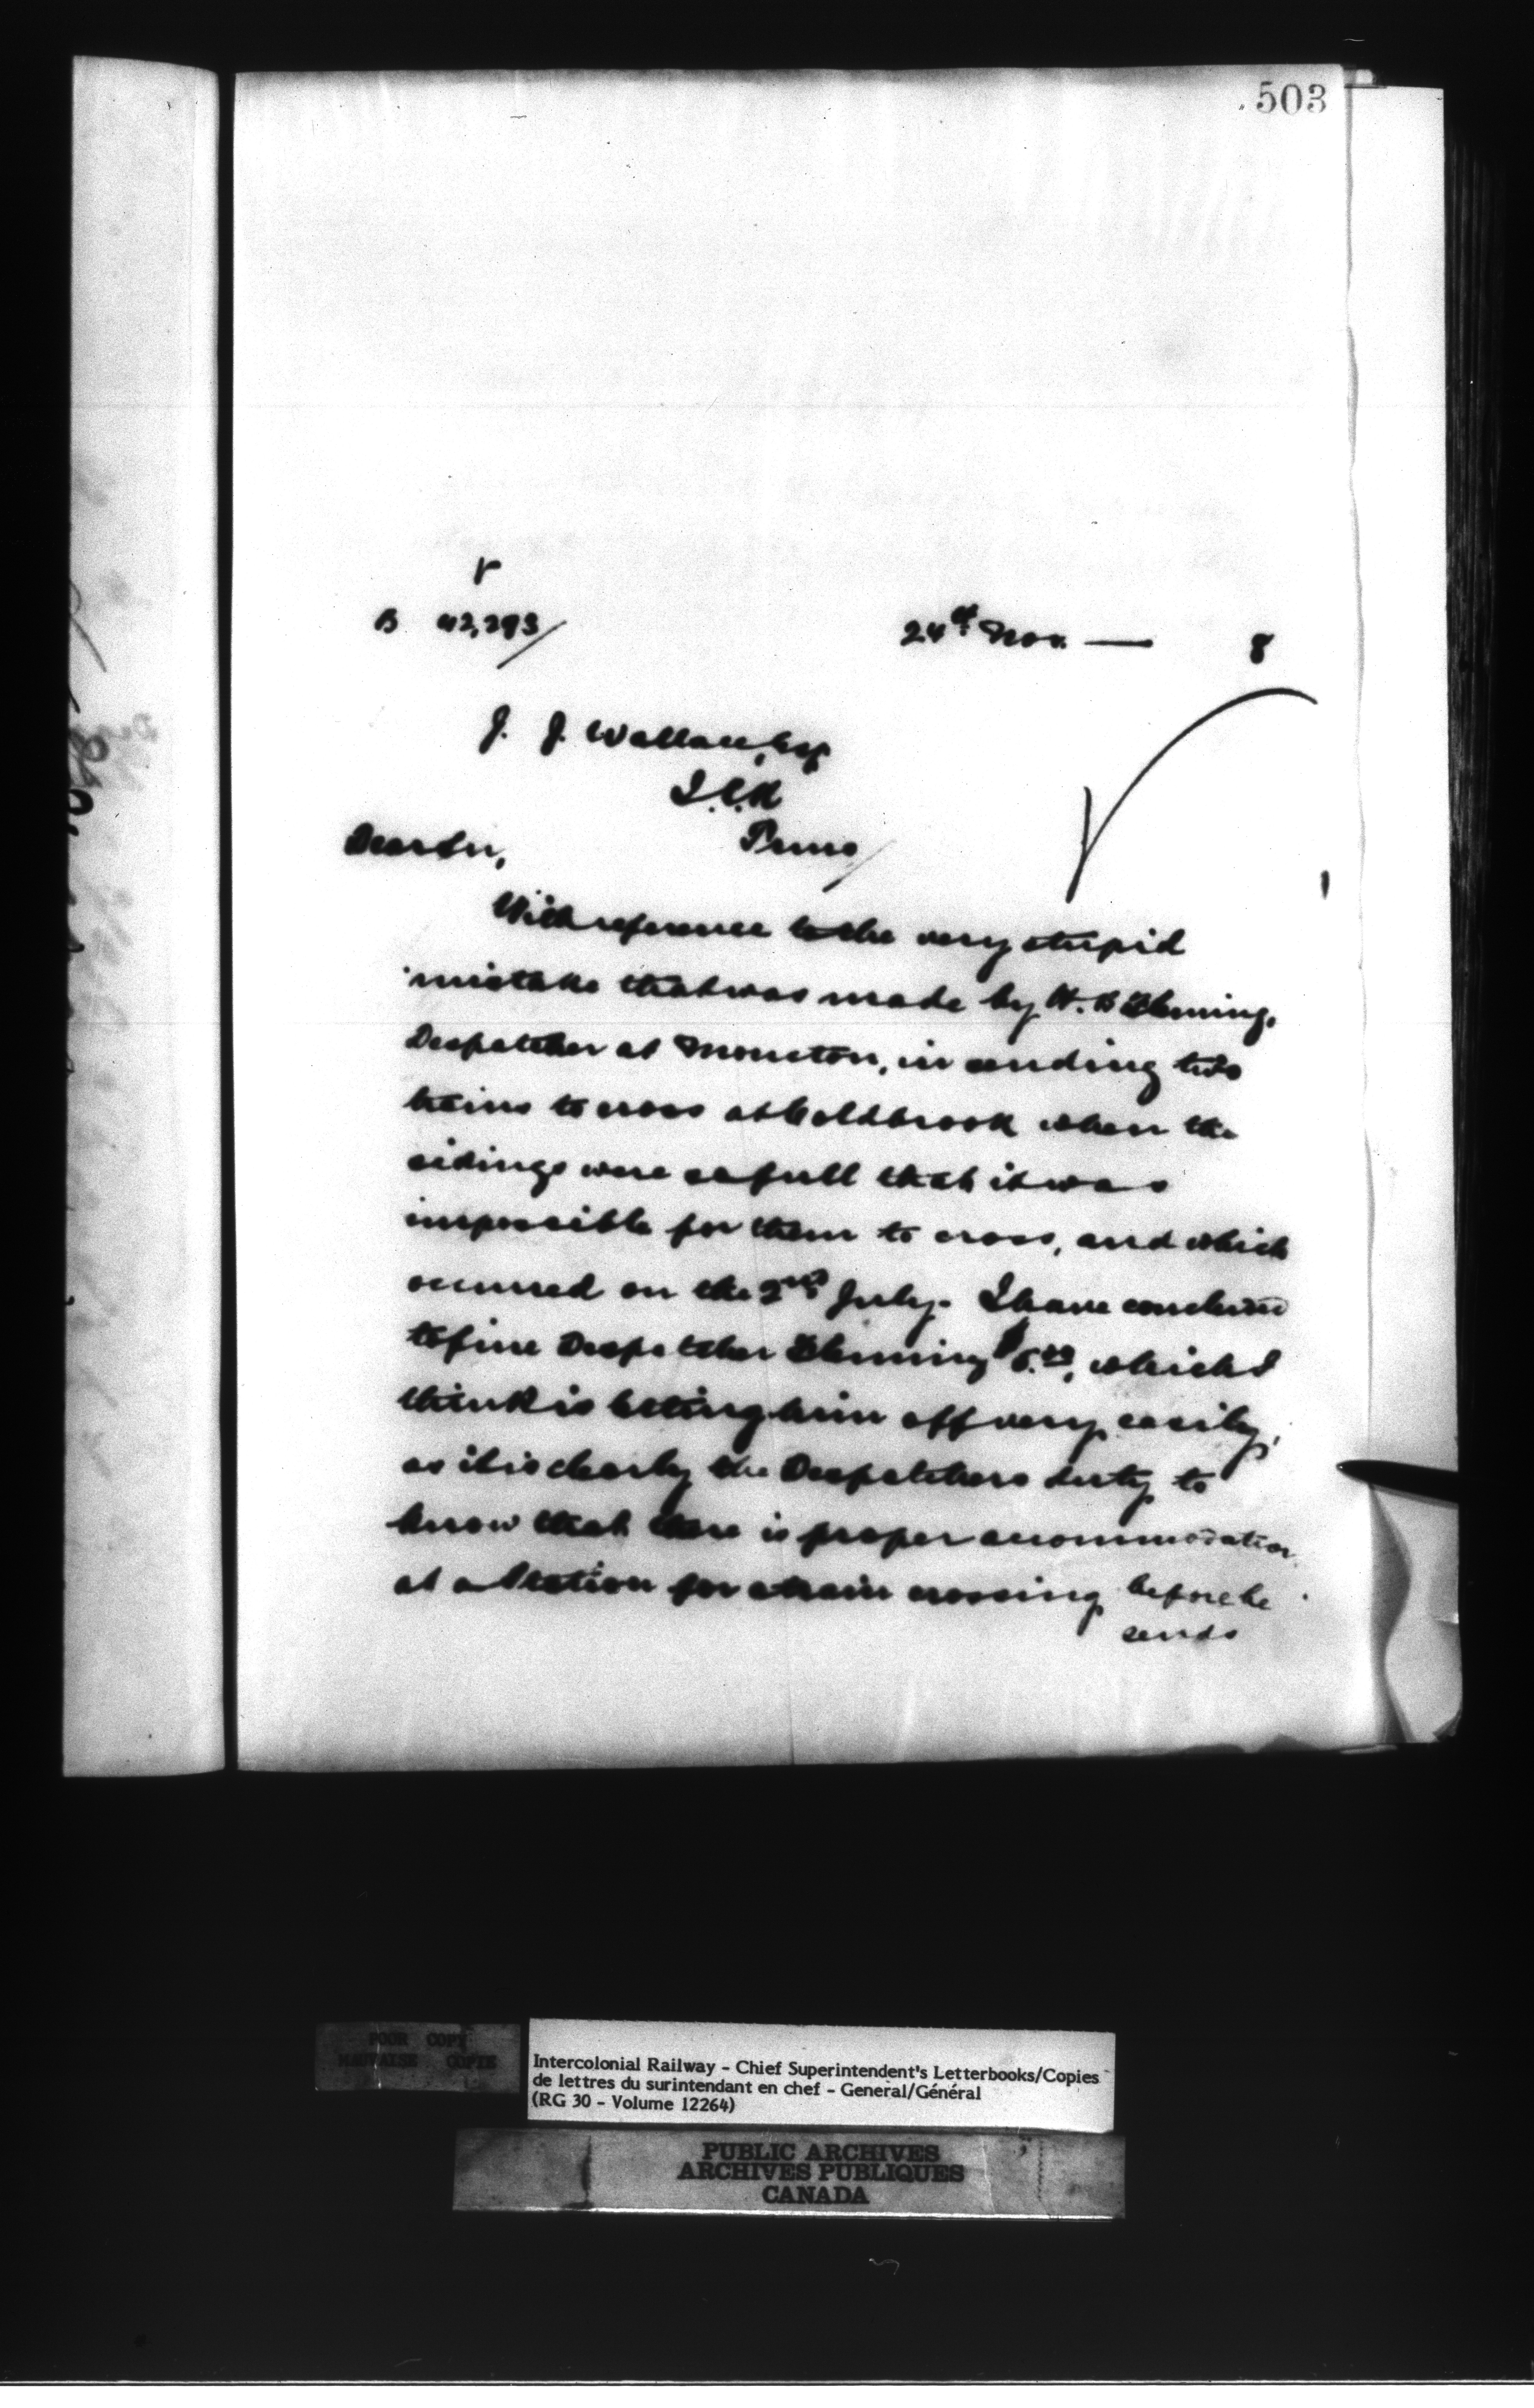 503
B 42,293/
24th Nov. — 8
J. J. Wallace, Esq
I.C.R
Truro/
Dear Sir,
With reference to the very stupid
mistake that was made by H. B Fleming,
Despatcher at Moncton, in sending two
trains to cross at Coldbrook when the
sidings were so full that it was
impossible for them to cross, and which
occurred on the 2nd July. I have concluded
to fine Despatcher Fleming $5.00, which I
think is letting him off very easily,
as it is clearly the Despatchers duty to
know that there is proper accommodation
at a Station for a train crossing before he
sends
POOR COPY
MAUVAISE COPIE
Intercolonial Railway - Chief Superintendent's Letterbooks/Copies
de lettres du surintendant en chef - General/Général
(RG 30 - Volume 12264)
PUBLIC ARCHIVES
ARCHIVES PUBLIQUES
CANADA